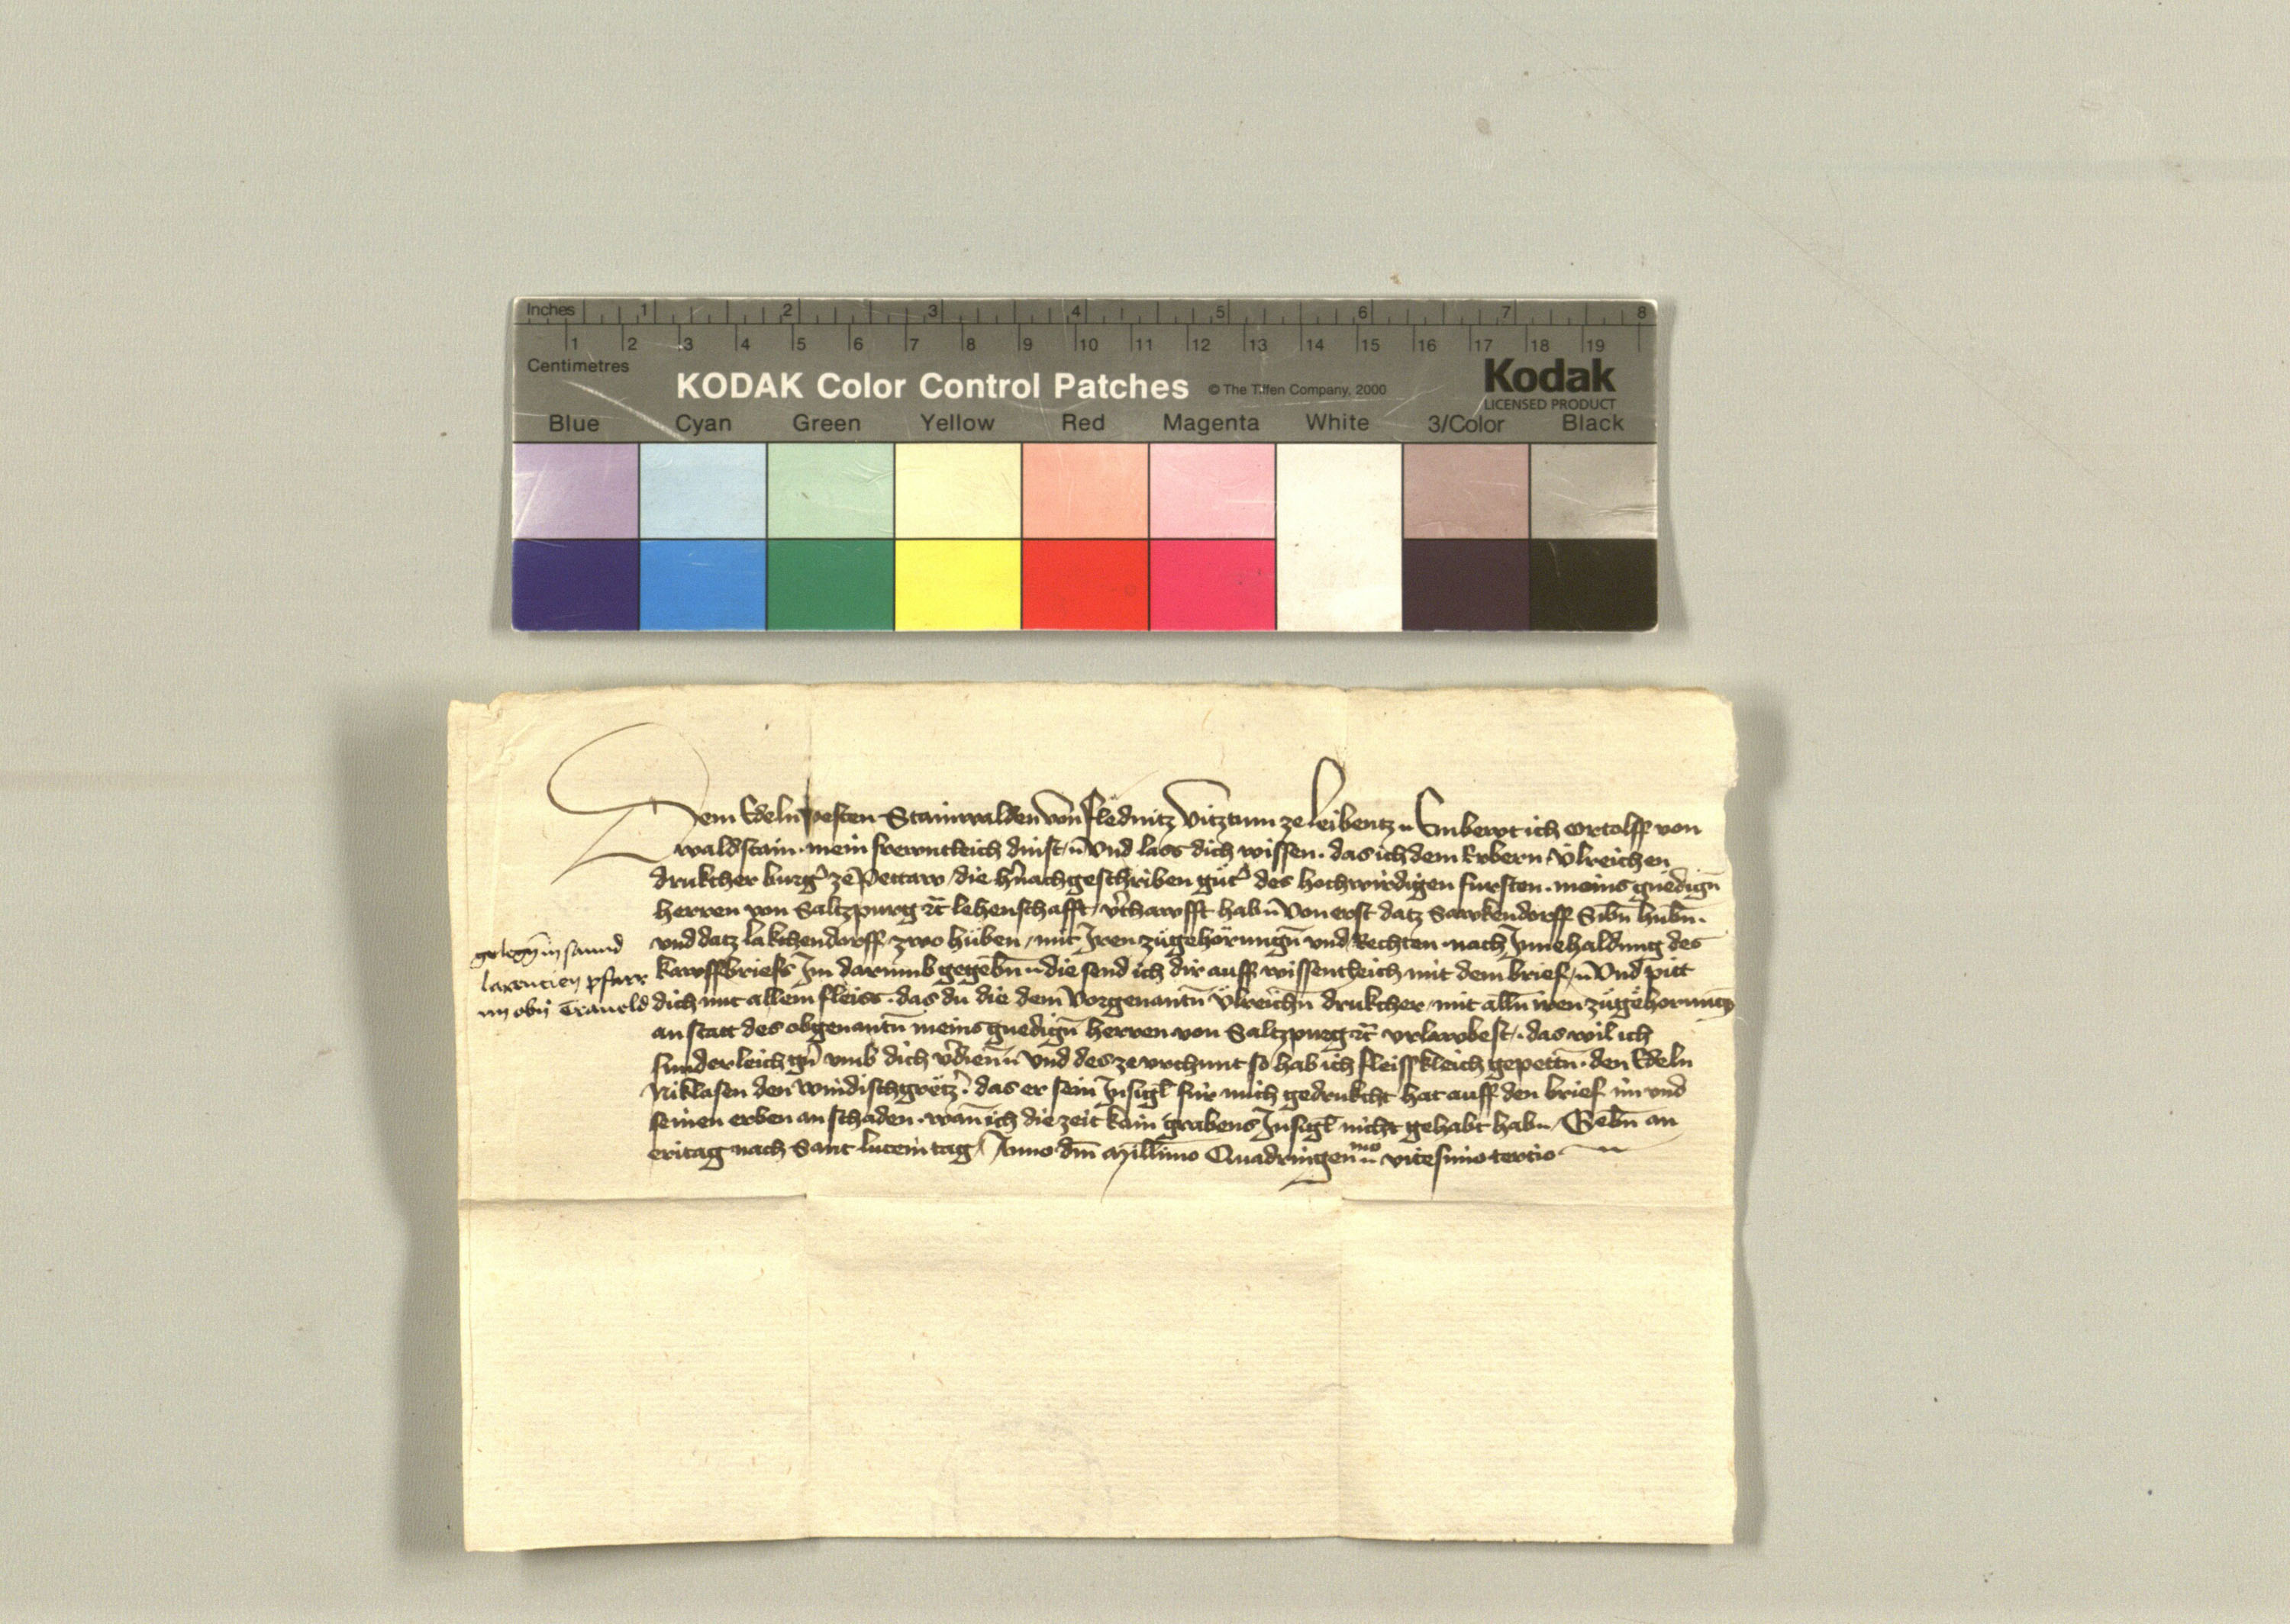 Inches 1 2 3 4 5 6 7 8
1 2 3 4 5 6 7 8 9 10 11 12 13 14 15 16 17 18 19
Centimetres
KODAK Color Control Patches © The Tiffen Company, 2000
Kodak
LICENSED PRODUCT
Blue Cyan Green Yellow Red Magenta White 3/Color Black
Dem Edeln vesten Stainwalden von flednitz Vitztum ze leibentz Embewt ich Ortolff von
waldstain mein frewntleich dinst und lass dich wissen das ich dem Erbern Ulreichen
drukcher burg ze Pettaw die hnachgeschriben güt des hochwirdigen fursten meins gnedign
herren von Saltzpurg lehenschafft vkhawfft habn Von erst datz Sawkendorff Sibn hubn
und datz lakchendorff zwo hüben mit Iren zügehörungn und Rechten nach Innehaldung des
kawffbriefs Im darumb gegebn die send ich dir auff wissentleich mit dem brief Und pitt
dich mit allem fleiss das du die dem Vorgenantn Ülreichn drukcher mit alln iren zügehorung
an statt des obgenantn meins gnedign herren von Saltzpurg verlewbest das wil ich
sunderleich gn umb dich vdienn Und des ze vrchunt so hab ich fleisskleich gepettn den Edeln
Niklasen den windischgretz das er sein Insigl fur mich gedrukcht hat auff den brief im und
seinen erben an schaden wan ich die zeit kain grabens Insigl nicht gehabt hab Gebn an
eritag nach Sant lucein tag Anno dm Millimo Quadringen mo vicesimo tercio
gelegn in sannd
larencien pfarr